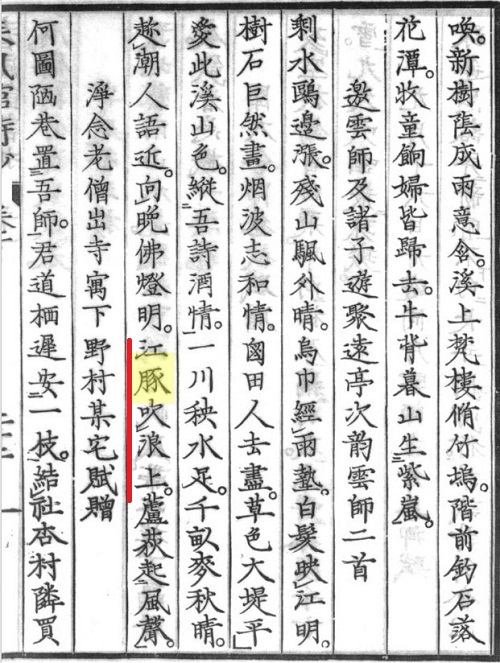 喚。新樹陰成雨意含。溪上梵樓脩竹塢。階前釣石落
花潭。牧童餉婦皆歸去。牛背暮山生紫嵐。
邀雲師及諸子遊聚遠亭次韵雲師二首
剩水鷗邊漲。殘山颿外晴。烏巾經雨墊。白髮映江明。
樹石巨然畫。烟波志和情。田人去盡。草色大堤平
愛此溪山色。縱吾詩酒情。一川秧水足。千畝麥秋晴。
趂潮人語近。向晚佛燈明。江豚吹浪上。蘆荻起風聲。
淨念老僧出寺寓下野村某宅賦贈
何圖陋巷置吾師。君道栖遲安一枝。結社杏村隣買